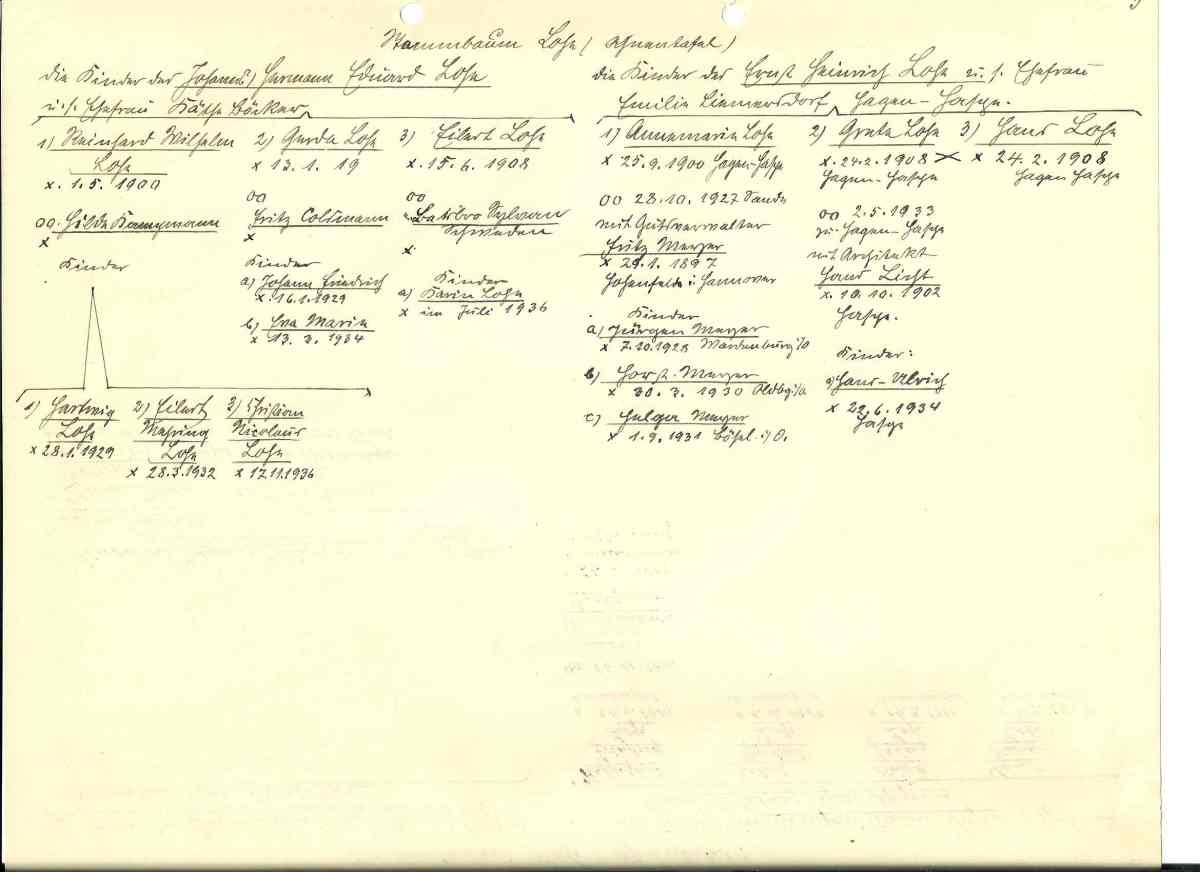 Stammbaum Lohse (Ahnentafel)
Die Kinder des Johannes Hermann Eduard Lohse
u. s. Ehefrau Käthe Böcker
1) Reinhard Wilhelm
Lohse
x. 1. 5. 1900
oo. Hilde Kampmann
x
Kinder
1) Hartwig
Lohse
x 28.1.1929
2) Eilert
Lohse
x 28.3.1932
3) Christian
Nicolaus
Lohse
x 17.11.1936
2) Gerda Lohse
x 13. 1. 19
oo
Fritz
x
Kinder
a) Johann Friedrich
x. 16.1.1929
b) Eva Maria
x 13. 3. 1934
3) Eilert Lohse
x. 15. 6. 1908
oo
Schweden
x.
Kinder
a) Karin Lohse
x im Juli 1936
die Kinder des Ernst Heinrich Lohse u. s. Ehefrau
Emilie Hagen-Haspe.
1) Annemarie Lohse
x 25. 9. 1900 Hagen-Haspe
oo 28. 10. 1927 Sande
mit Gutsverwalter
Fritz Meyer
x 29. 1. 1897
Hohenfelde i. Hannover
Kinder
a) Jürgen Meyer
x 7.10.1928 Wardenburg i/o
b) Horst Meyer
x 30. 3. 1930 Oldbg i/o
c) Helga Meyer
x 1. 9. 1931 Bösel i/O.
2) Grete Lohse
x. 24. 2. 1908
Hagen-Haspe
oo 2. 5. 1933
zu Hagen-Haspe
mit Architekt
Hans Licht
x. 10. 10. 1902
Haspe.
Kinder:
a) Hans-Ulrich
x 22. 6. 1934
Haspe
3) Hans Lohse
x 24. 2. 1908
Hagen Haspe